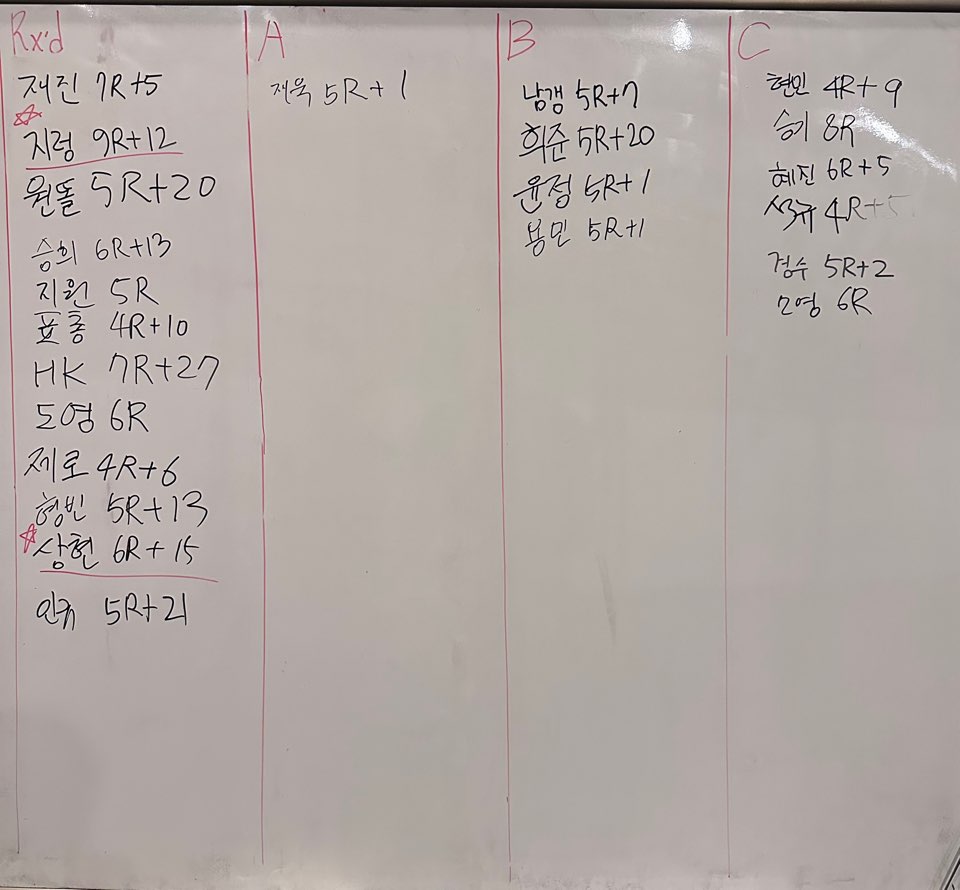 Rx'd
재진 7R+5
지렁 9R+12
원돌 5R+20
승희 6R+13
지원 5R
표총 4R+10
HK 7R+27
도영 6R
제로 4R+6
형빈 5R+13
상현 6R+15
인규 5R+21
A
재욱 5R+1
B
남갱 5R+7
희준 5R+20
윤정 5R+1
용민 5R+1
C
현민 4R+9
승기 8R
혜진 6R+5
석규 4R+5
경수 5R+2
모영 6R